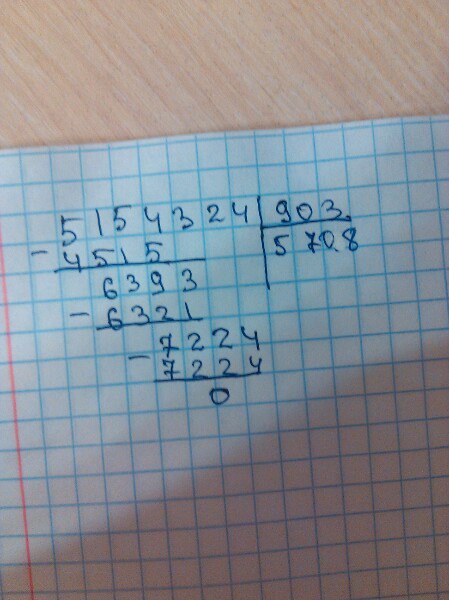 5154324 | 903
- 4515 | 5708
6393
- 6321
7224
- 7224
0